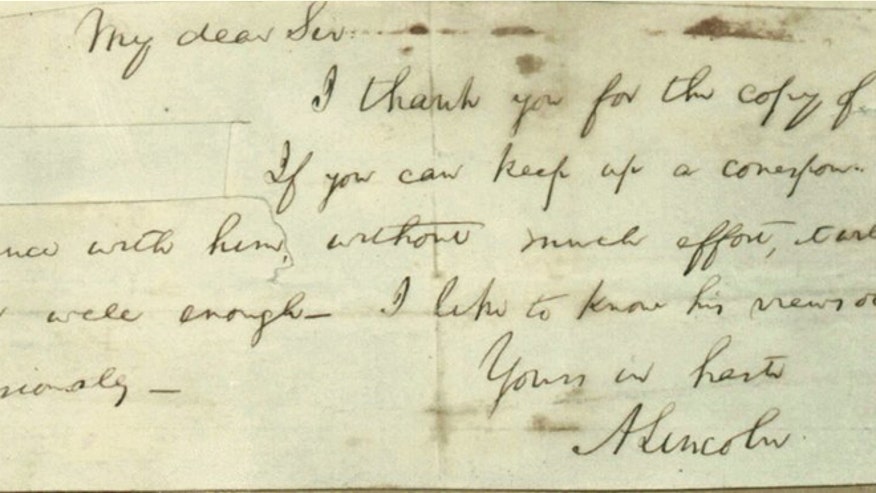 My dear Sir:
I thank you for the copy of
If you can keep up a correspon-
ence with him, without much effort, it will
well enough— I like to know his views oc
sionally—
Yours in haste
A Lincoln